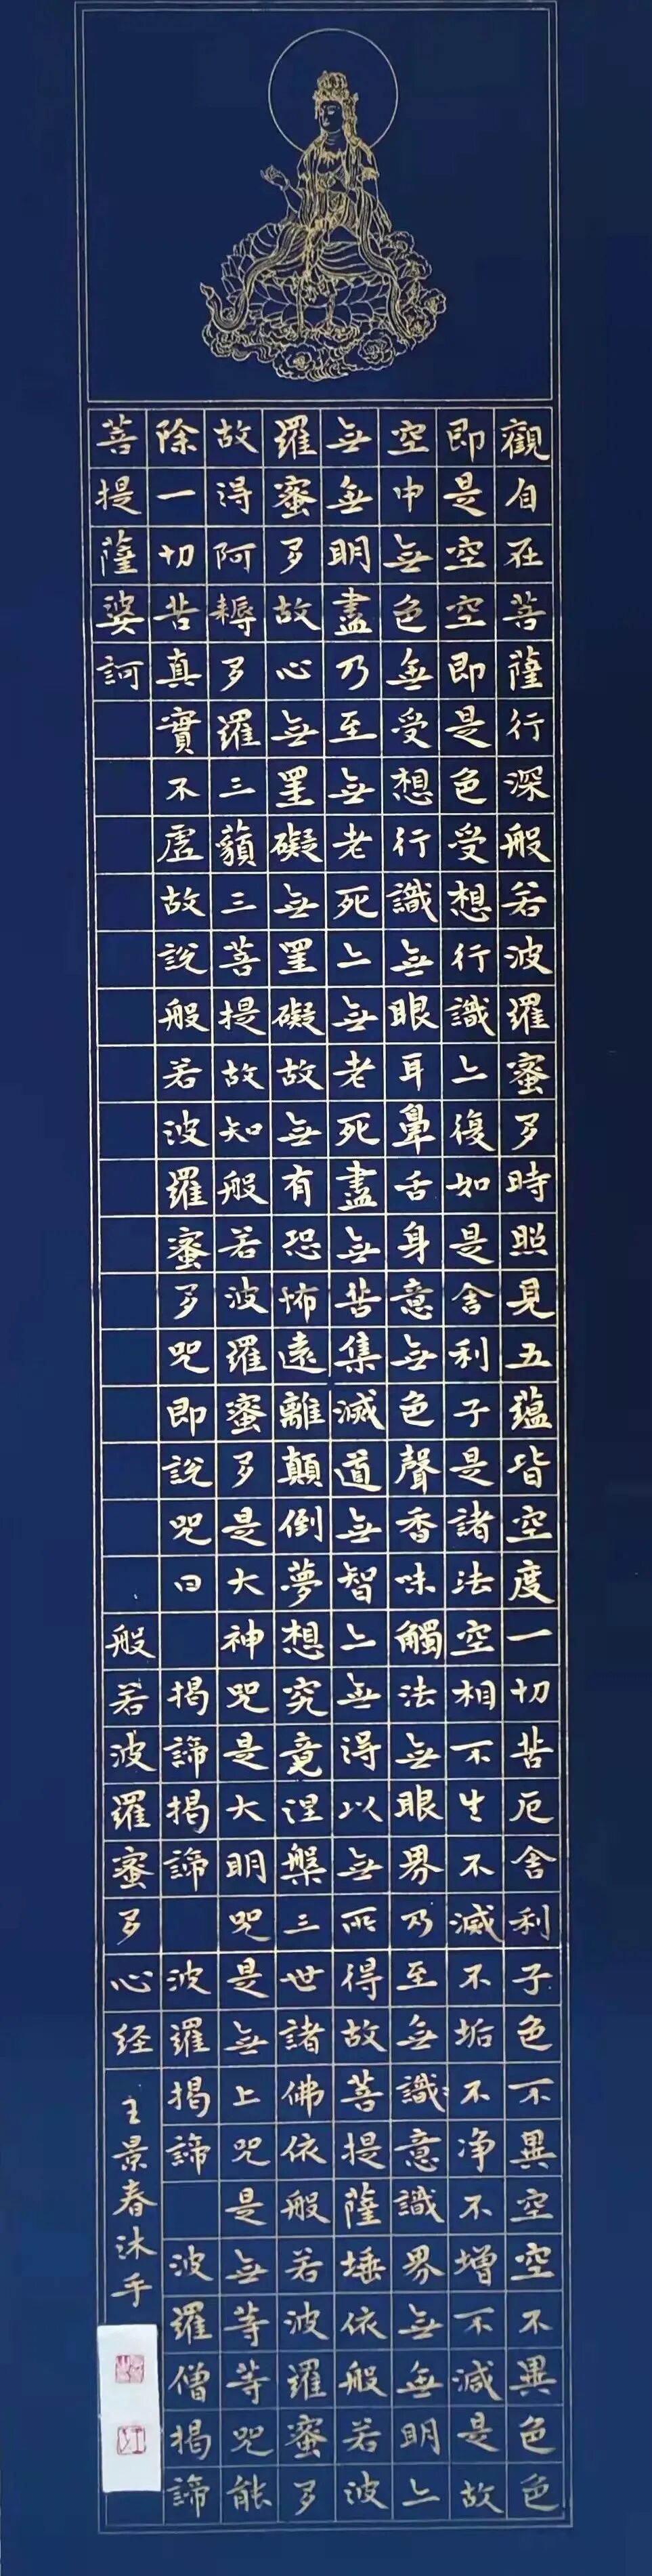 觀自在菩薩行深般若波羅蜜多時照見五蘊皆空度一切苦厄舍利子色不異空空不異色色
即是空空即是色受想行識亦復如是舍利子是諸法空相不生不滅不垢不净不增不減是故
空中無色無受想行識無眼耳鼻舌身意無色聲香味觸法無眼界乃至無識意識界無無明亦
無無明盡乃至無老死亦無老死盡無苦集滅道無智亦無得以無所得故菩提薩埵依般若波
羅蜜多故心無罣礙無罣礙故無有恐怖遠離顛倒夢想究竟涅槃三世諸佛依般若波羅蜜多
故得阿耨多羅三藐三菩提故知般若波羅蜜多是大神咒是大明咒是無上咒是無等等咒能
除一切苦真實不虛故說般若波羅蜜多咒即說咒曰 揭諦揭諦 波羅揭諦 波羅僧揭諦
菩提薩婆訶 般若波羅蜜多心経 王景春沐手